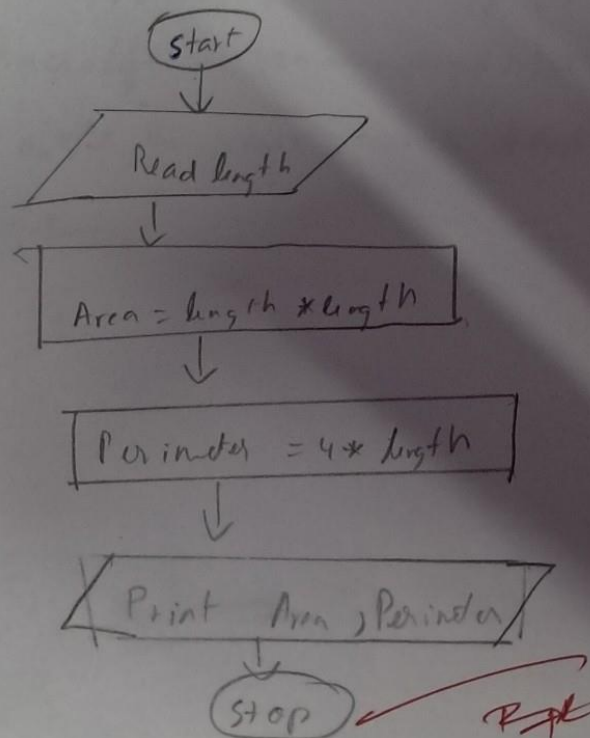 Start
Read length
Area = length * length
Perimeter = 4 * length
Print Area, Perimeter
Stop